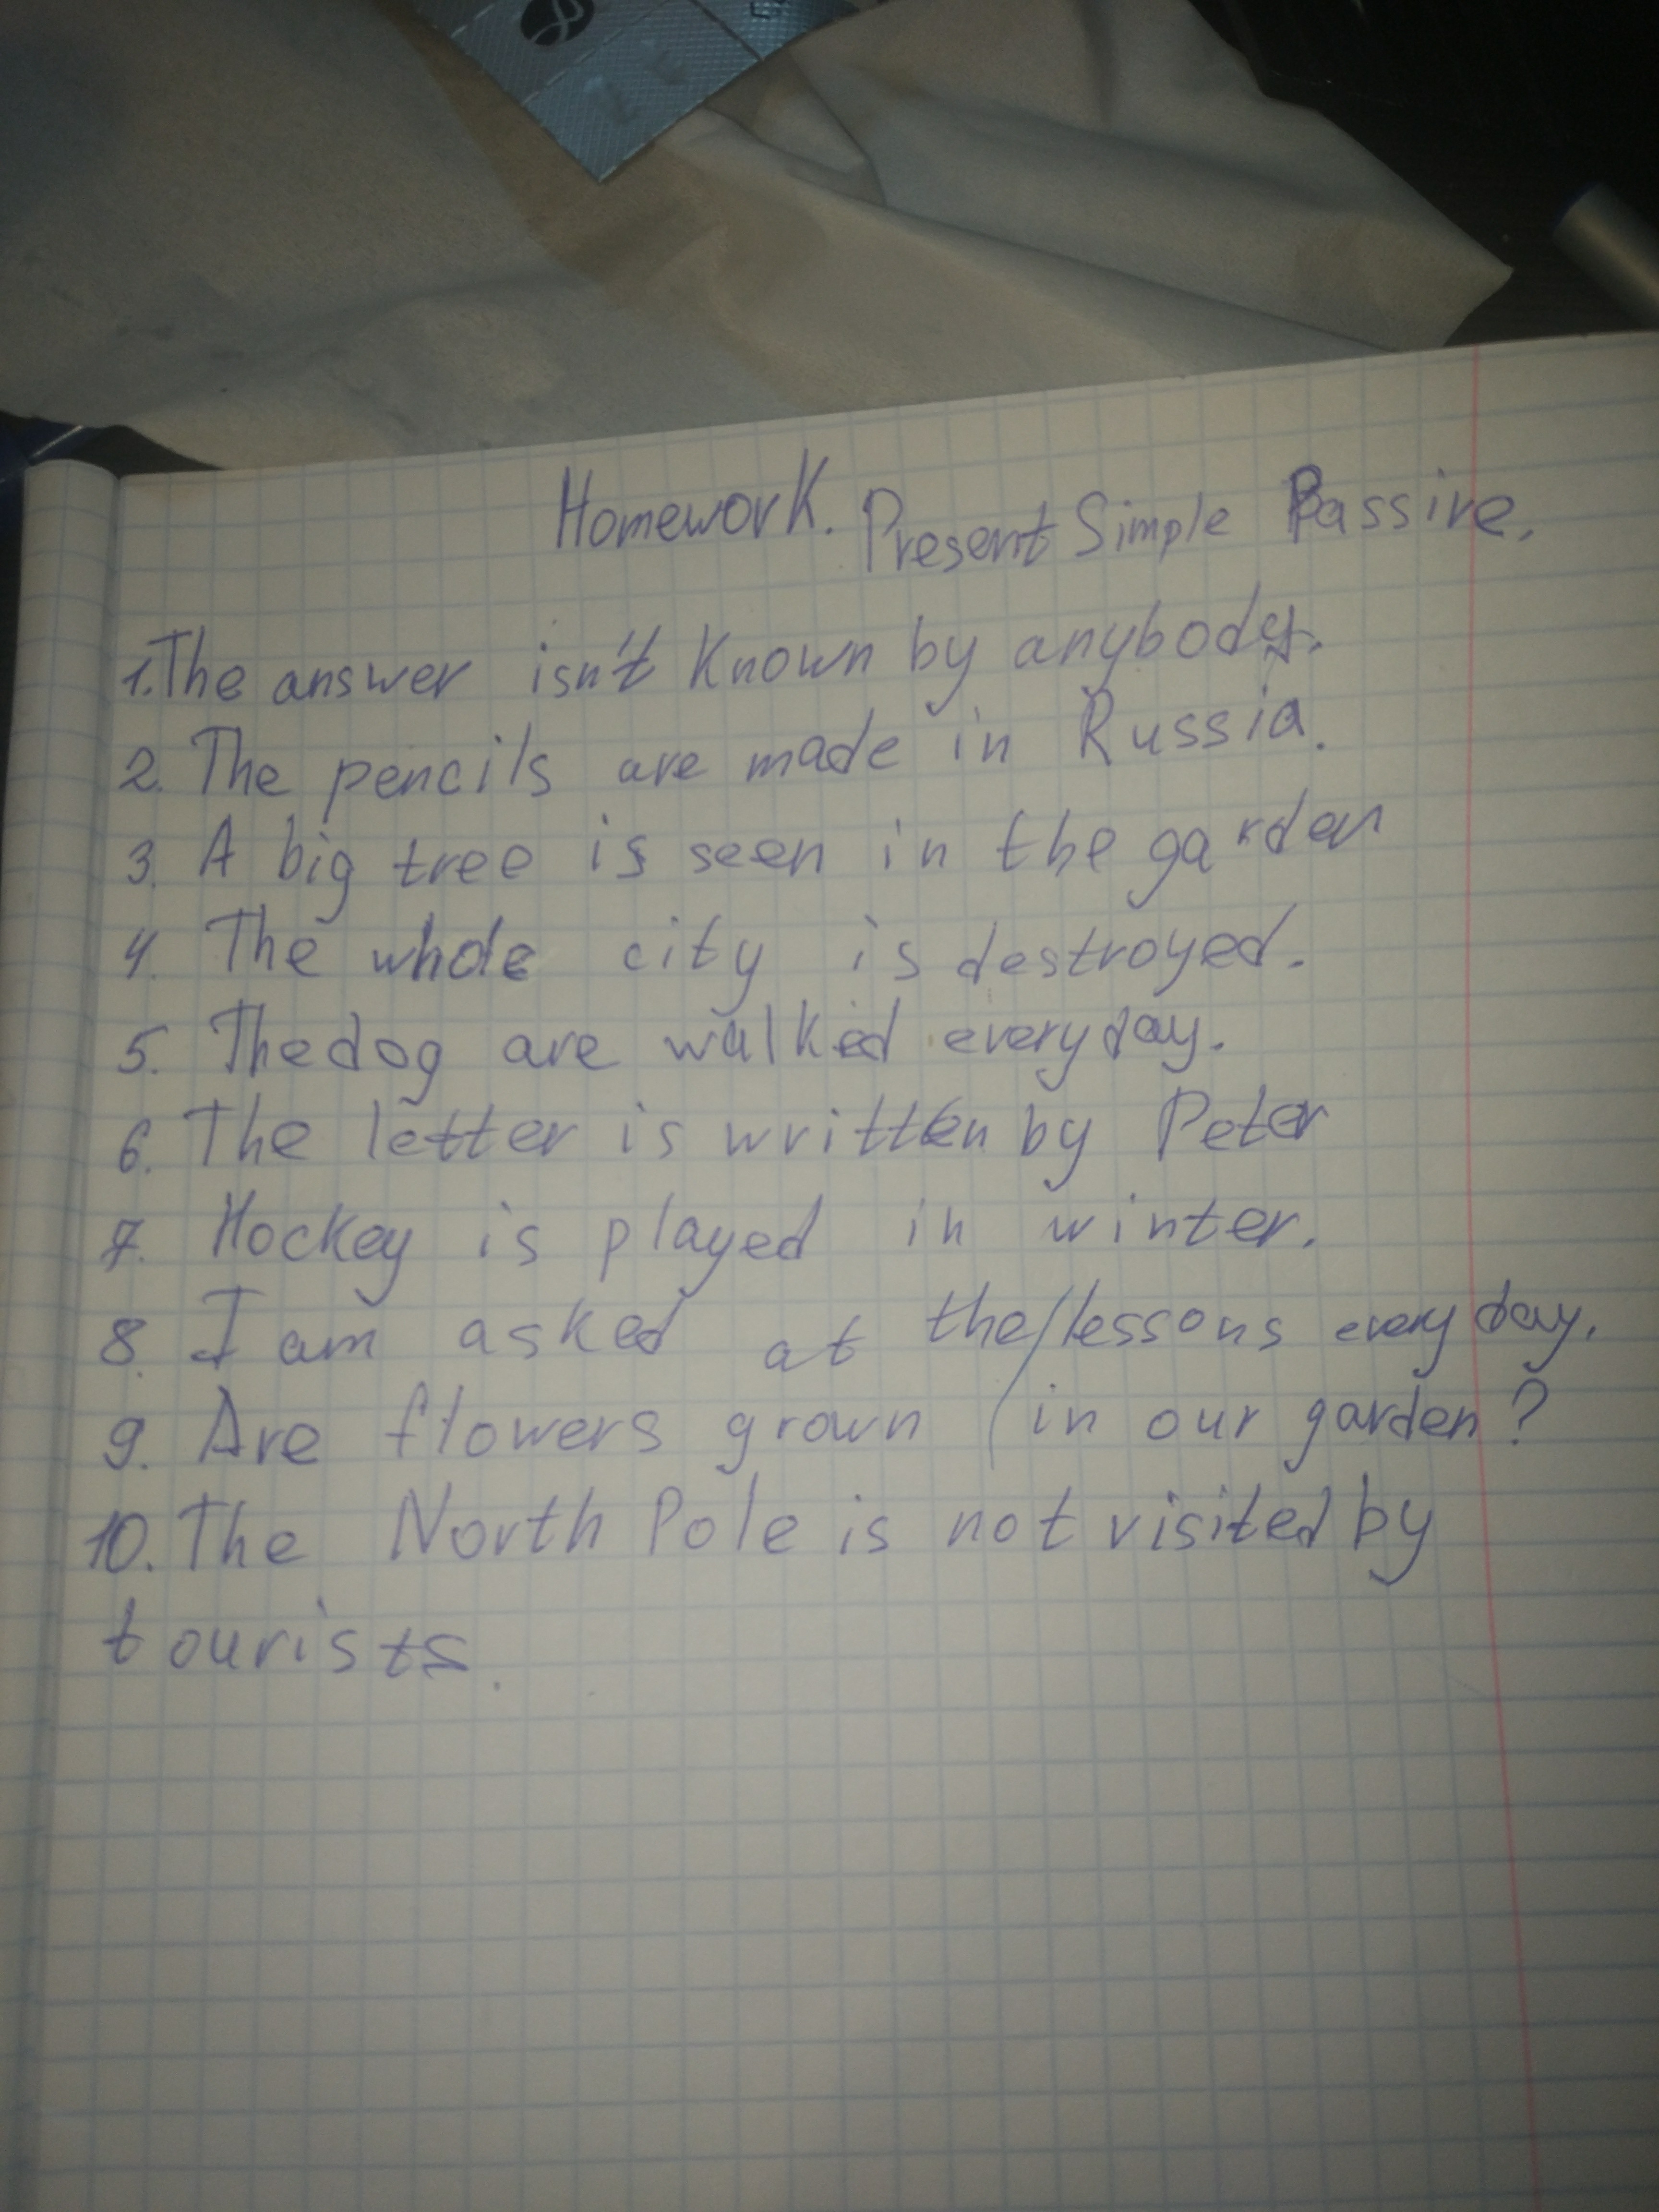 Homework. Present Simple Passive.
1. The answer isn't known by anybody.
2. The pencils are made in Russia.
3. A big tree is seen in the garden
4. The whole city is destroyed.
5. The dog are walked every day.
6. The letter is written by Peter
7. Hockey is played in winter.
8. I am asked at the/lessons every day.
9. Are flowers grown (in our garden?
10. The North Pole is not visited by
tourists.